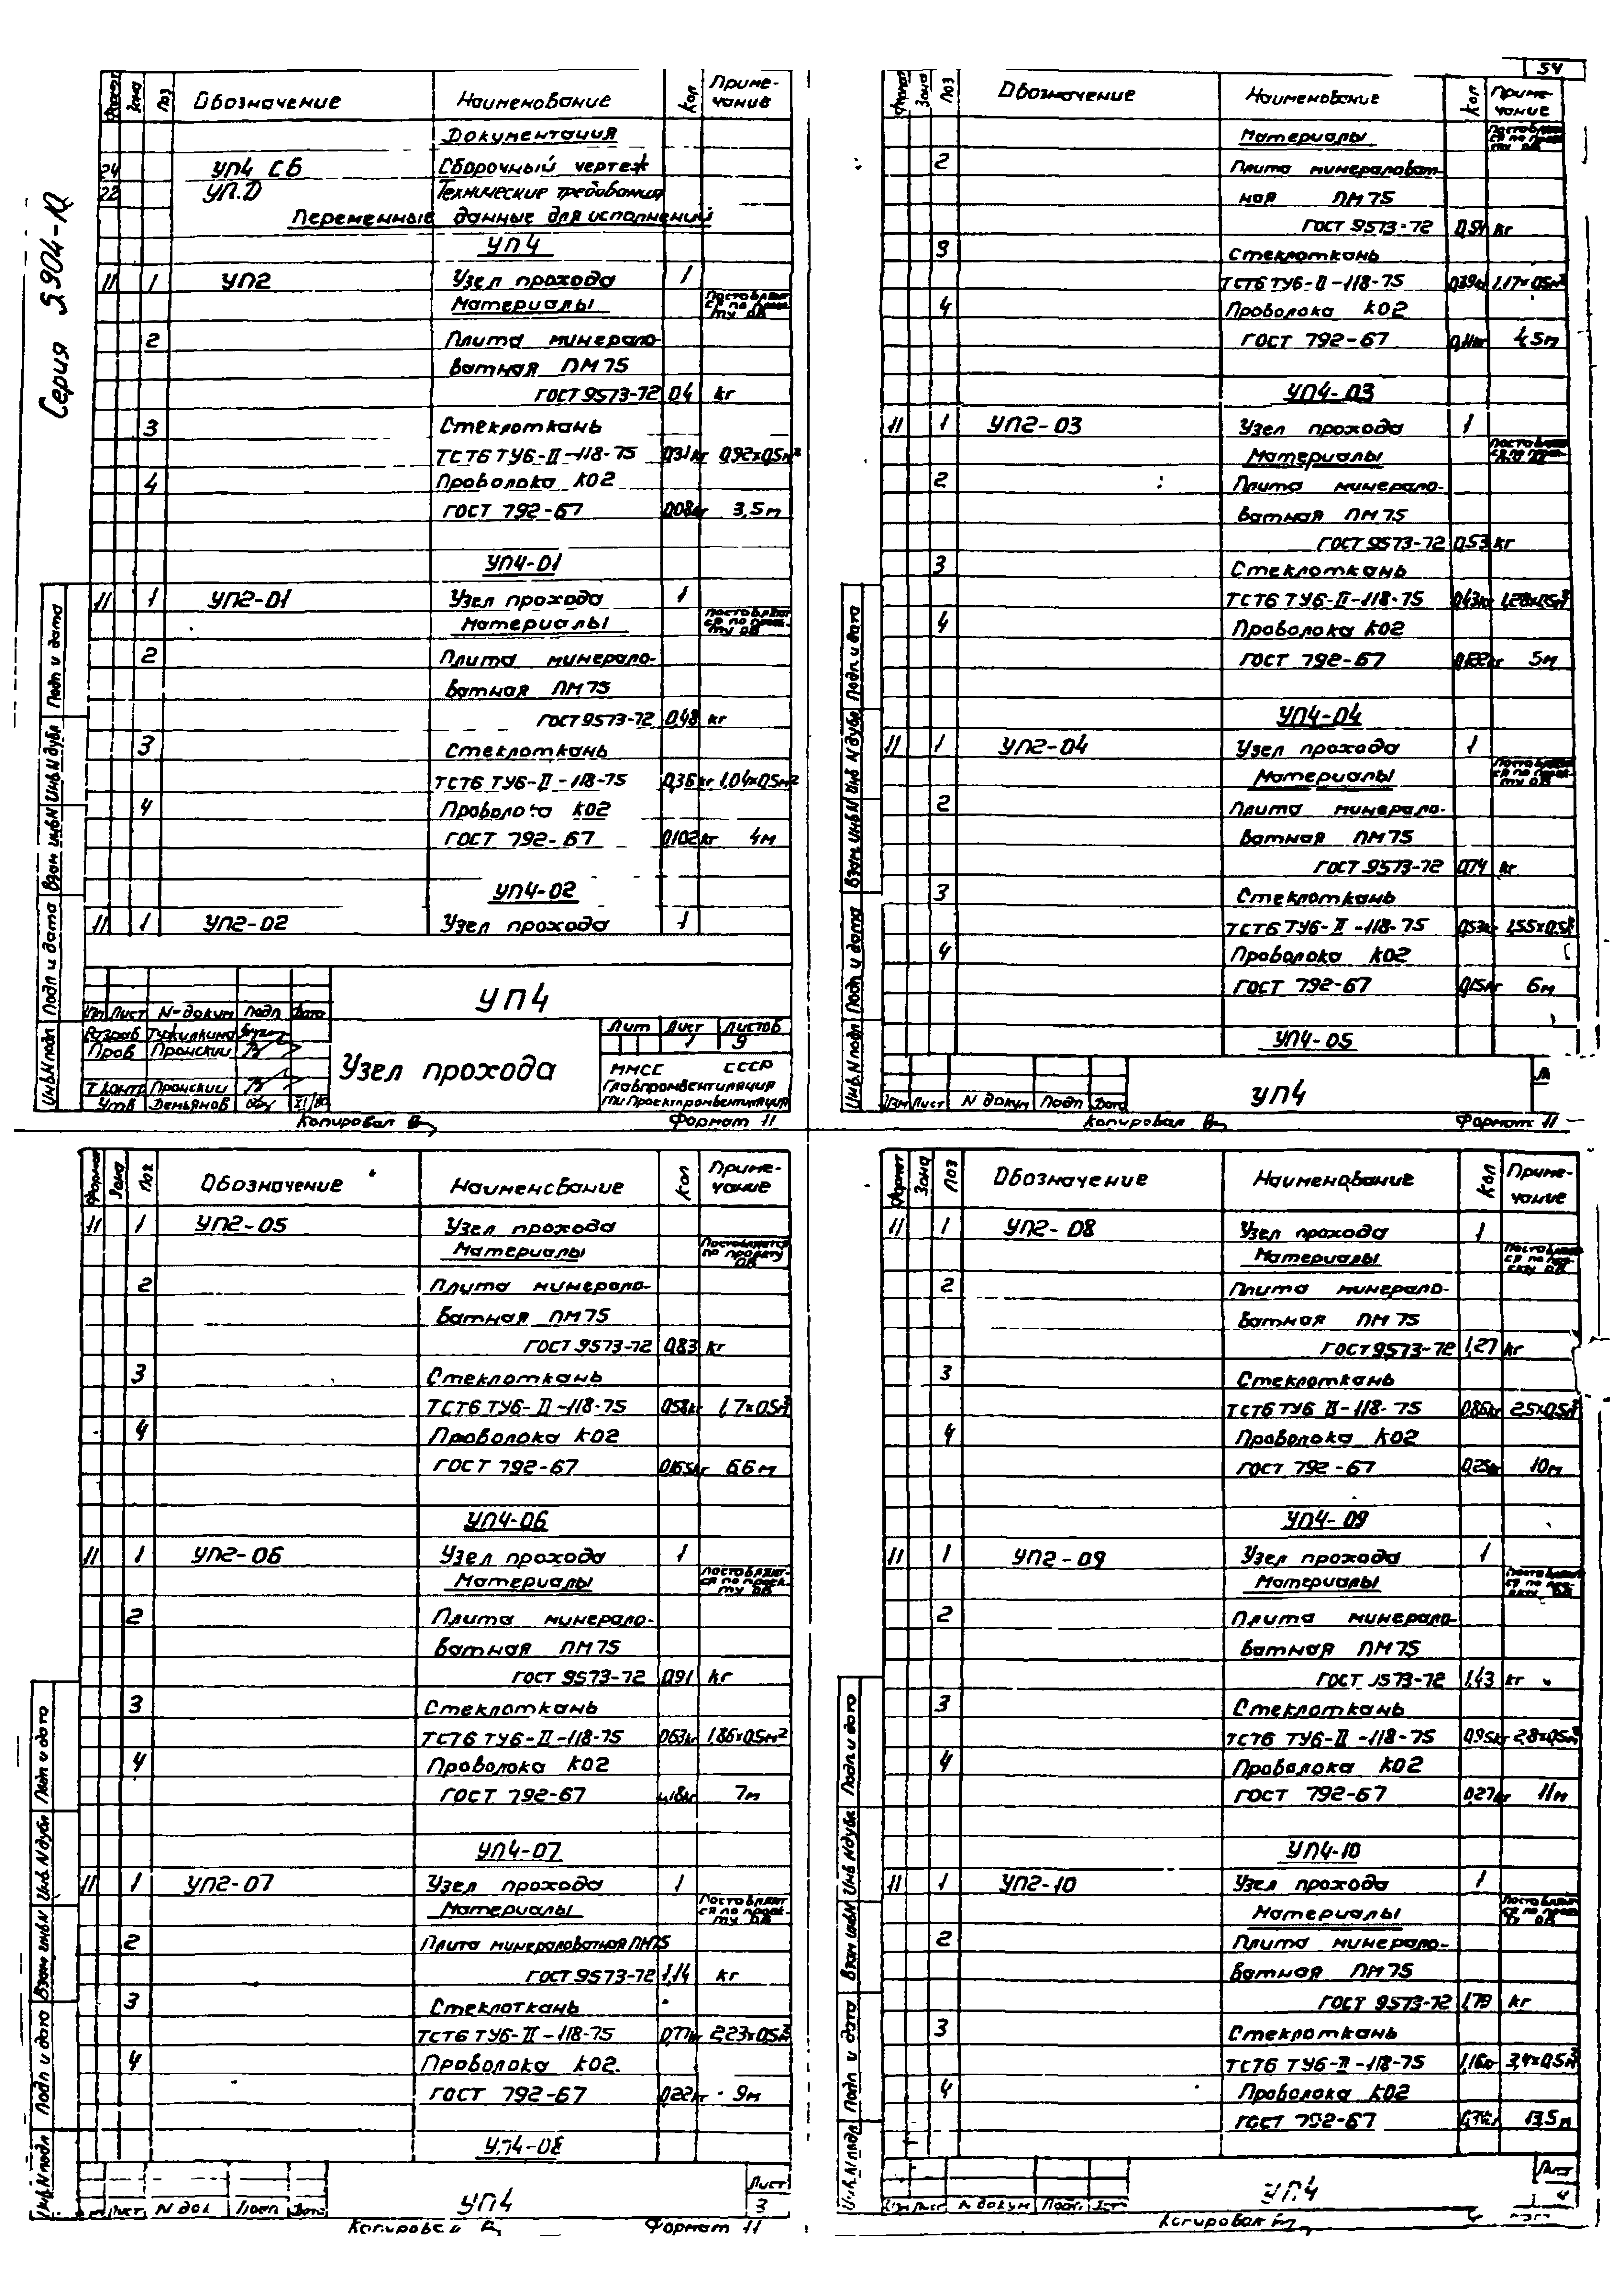 Серия 5.904-10
54
Формат Зона Поз Обозначение Наименование Кол Приме-
чание
Документация
24 УП4 СБ Сборочный чертеж
22 УП.Д Технические требования
Переменные данные для исполнений
УП4
11 1 УП2 Узел прохода 1
Материалы Поставляет-
ся по проек-
ту ОВ
2 Плита минерало-
ватная ПМ75
ГОСТ 9573-72 0,4 кг
3 Стеклоткань
ТСТ6 ТУ6-II-118-75 0,31кг 0,92×0,5м²
4 Проволока КО2
ГОСТ 792-67 0,08кг 3,5м
УП4-01
11 1 УП2-01 Узел прохода 1
Материалы Поставляет-
ся по проек-
ту ОВ
2 Плита минерало-
ватная ПМ75
ГОСТ 9573-72 0,48 кг
3 Стеклоткань
ТСТ6 ТУ6-II-118-75 0,36 кг 1,04×0,5м²
4 Проволока КО2
ГОСТ 792-67 0,102кг 4м
УП4-02
11 1 УП2-02 Узел прохода 1
УП4
Изм Лист N-докум Подп Дата
Разраб Туркилкина
Пров Пронский
Т.контр Пронский
Утв Демьянов XI/80
Узел прохода
Лит Лист Листов
1 9
ММСС СССР
Главпромвентиляция
ГПИ Проектпромвентиляция
Копировал Формат 11
Инв.N подл Подп и дата Взам инв.N Инв.N дубл Подп и дата
Формат Зона Поз Обозначение Наименование Кол Приме-
чание
Материалы Поставляет-
ся по проек-
ту ОВ
2 Плита минераловат-
ная ПМ75
ГОСТ 9573-72 0,51 кг
3 Стеклоткань
ТСТ6 ТУ6-II-118-75 0,39кг 1,17×0,5м²
4 Проволока КО2
ГОСТ 792-67 0,11кг 4,5м
УП4-03
11 1 УП2-03 Узел прохода 1
Материалы Поставляет-
ся по проек-
ту ОВ
2 Плита минерало-
ватная ПМ75
ГОСТ 9573-72 0,53 кг
3 Стеклоткань
ТСТ6 ТУ6-II-118-75 0,43кг 1,28×0,5м²
4 Проволока КО2
ГОСТ 792-67 5м
УП4-04
11 1 УП2-04 Узел прохода 1
Материалы Поставляет-
ся по проек-
ту ОВ
2 Плита минерало-
ватная ПМ75
ГОСТ 9573-72 0,74 кг
3 Стеклоткань
ТСТ6 ТУ6-II-118-75 0,53кг 1,55×0,5м²
4 Проволока КО2
ГОСТ 792-67 0,15кг 6м
УП4-05
Изм Лист N докум Подп Дата УП4
Копировал Формат 11
Инв.N подл Подп и дата Взам инв.N Инв N дубл Подп и дата
Формат Зона Поз Обозначение Наименование Кол Приме-
чание
11 1 УП2-05 Узел прохода
Материалы Поставляется
по проекту
ОВ
2 Плита минерало-
ватная ПМ75
ГОСТ 9573-72 0,83 кг
3 Стеклоткань
ТСТ6 ТУ6-II-118-75 0,58кг 1,7×0,5м²
4 Проволока КО2
ГОСТ 792-67 0,165кг 6,6м
УП4-06
11 1 УП2-06 Узел прохода 1
Материалы Поставляет-
ся по проек-
ту ОВ
2 Плита минерало-
ватная ПМ75
ГОСТ 9573-72 0,91 кг
3 Стеклоткань
ТСТ6 ТУ6-II-118-75 0,63кг 1,86×0,5м²
4 Проволока КО2
ГОСТ 792-67 0,18кг 7м
УП4-07
11 1 УП2-07 Узел прохода 1
Материалы Поставляет-
ся по проек-
ту ОВ
2 Плита минераловатная ПМ75
ГОСТ 9573-72 1,14 кг
3 Стеклоткань
ТСТ6 ТУ6-II-118-75 0,77кг 2,23×0,5м²
4 Проволока КО2
ГОСТ 792-67 0,22кг 9м
УП4-08
Лист N док Подп Дата УП4 Лист
3
Копировал Формат 11
Инв.N подл Подп и дата Взам инв.N Инв.N дубл Подп и дата
Формат Зона Поз Обозначение Наименование Кол Приме-
чание
11 1 УП2-08 Узел прохода 1
Материалы Поставляет-
ся по про-
екту ОВ
2 Плита минерало-
ватная ПМ75
ГОСТ 9573-72 1,27 кг
3 Стеклоткань
ТСТ6 ТУ6 II-118-75 0,86кг 2,5×0,5м²
4 Проволока КО2
ГОСТ 792-67 0,25кг 10м
УП4-09
11 1 УП2-09 Узел прохода 1
Материалы Поставляет-
ся по про-
екту ОВ
2 Плита минерало-
ватная ПМ75
ГОСТ 9573-72 1,43 кг
3 Стеклоткань
ТСТ6 ТУ6-II-118-75 0,95кг 2,8×0,5м²
4 Проволока КО2
ГОСТ 792-67 0,27кг 11м
УП4-10
11 1 УП2-10 Узел прохода 1
Материалы Поставляет-
ся по проек-
ту ОВ
2 Плита минерало-
ватная ПМ75
ГОСТ 9573-72 1,79 кг
3 Стеклоткань
ТСТ6 ТУ6-II-118-75 1,16кг 3,4×0,5м²
4 Проволока КО2
ГОСТ 792-67 13,5м
Изм Лист N докум Подп. Дат УП4 Лист
4
Копировал
Инв.N подл Подп и дата Взам инв.N Инв N дубл Подп и дата